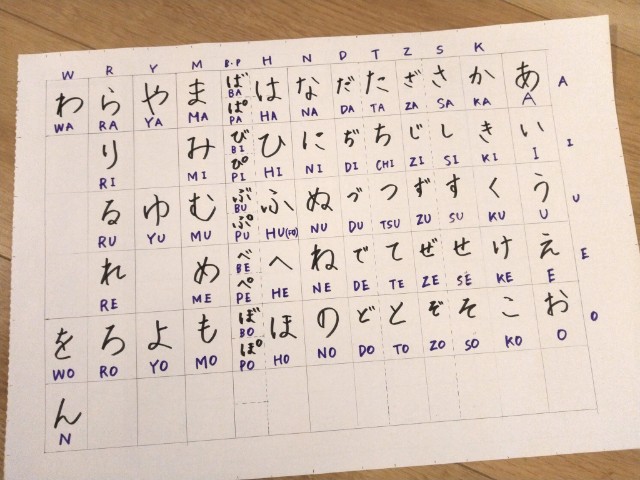 W R Y M B·P H N D T Z S K
わ ら や ま ば は な だ た ざ さ か あ
BA
ぱ
WA RA YA MA PA HA NA DA TA ZA SA KA A A
り み び ひ に ぢ ち じ し き い
BI
ぴ
RI MI PI HI NI DI CHI ZI SI KI I I
る ゆ む ぶ ふ ぬ づ つ ず す く う
BU
ぷ
RU YU MU PU HU(FU) NU DU TSU ZU SU KU U U
れ め べ へ ね で て ぜ せ け え
BE
ぺ
RE ME PE HE NE DE TE ZE SE KE E E
を ろ よ も ぼ ほ の ど と ぞ そ こ お
BO
ぽ
WO RO YO MO PO HO NO DO TO ZO SO KO O O
ん
N